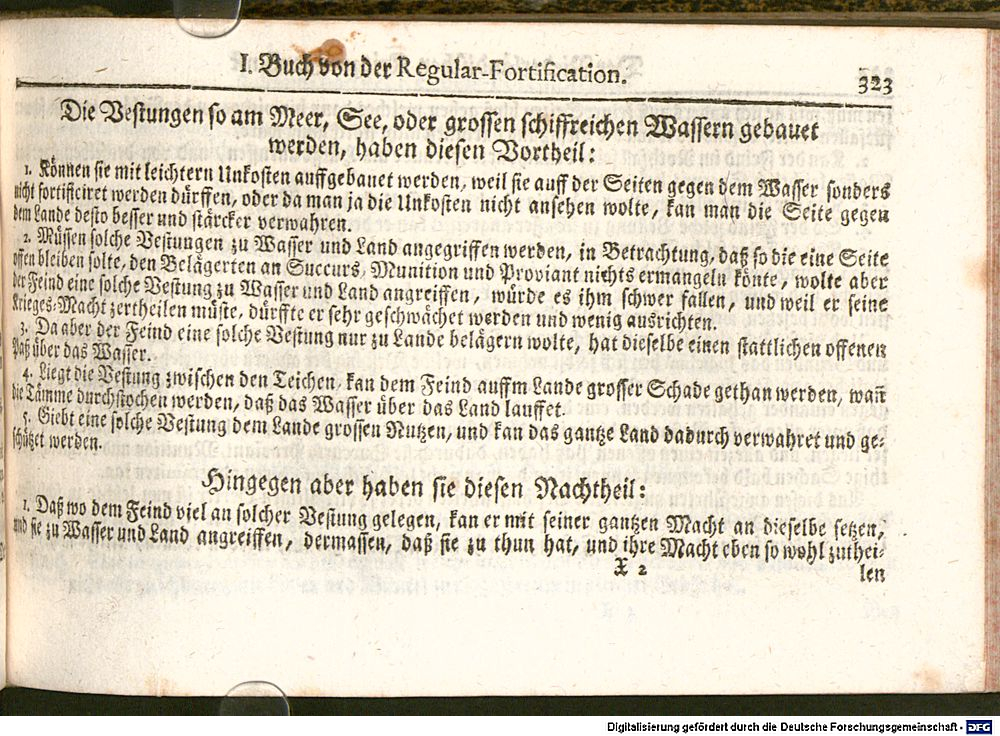 I. Buch von der Regular-Fortification.
323
Die Vestungen so am Meer, See, oder grossen schiffreichen Wassern gebauet
werden, haben diesen Vortheil:
1. Können sie mit leichtern Unkosten auffgebauet werden, weil sie auff der Seiten gegen dem Wasser sonders
nicht fortificiret werden dürffen, oder da man ja die Unkosten nicht ansehen wolte, kan man die Seite gegen
dem Lande desto besser und stärcker verwahren.
2. Müssen solche Vestungen zu Wasser und Land angegriffen werden, in Betrachtung, daß so die eine Seite
offen bleiben solte, den Belägerten an Succurs, Munition und Proviant nichts ermangeln könte, wolte aber
der Feind eine solche Vestung zu Wasser und Land angreiffen, würde es ihm schwer fallen, und weil er seine
Krieges-Macht zertheilen müste, dürffte er sehr geschwächet werden und wenig ausrichten.
3. Da aber der Feind eine solche Vestung nur zu Lande belägern wolte, hat dieselbe einen stattlichen offenen
Paß über das Wasser.
4. Liegt die Vestung zwischen den Teichen, kan dem Feind auffm Lande grosser Schade gethan werden, wañ
die Tämme durchstochen werden, daß das Wasser über das Land lauffet.
5. Giebt eine solche Vestung dem Lande grossen Nutzen, und kan das gantze Land dadurch verwahret und ge-
schützet werden.
Hingegen aber haben sie diesen Nachtheil:
1. Daß wo dem Feind viel an solcher Vestung gelegen, kan er mit seiner gantzen Macht an dieselbe setzen,
und sie zu Wasser und Land angreiffen, dermassen, daß sie zu thun hat, und ihre Macht eben so wohl zuthei-
X 2
len
Digitalisierung gefördert durch die Deutsche Forschungsgemeinschaft - DFG